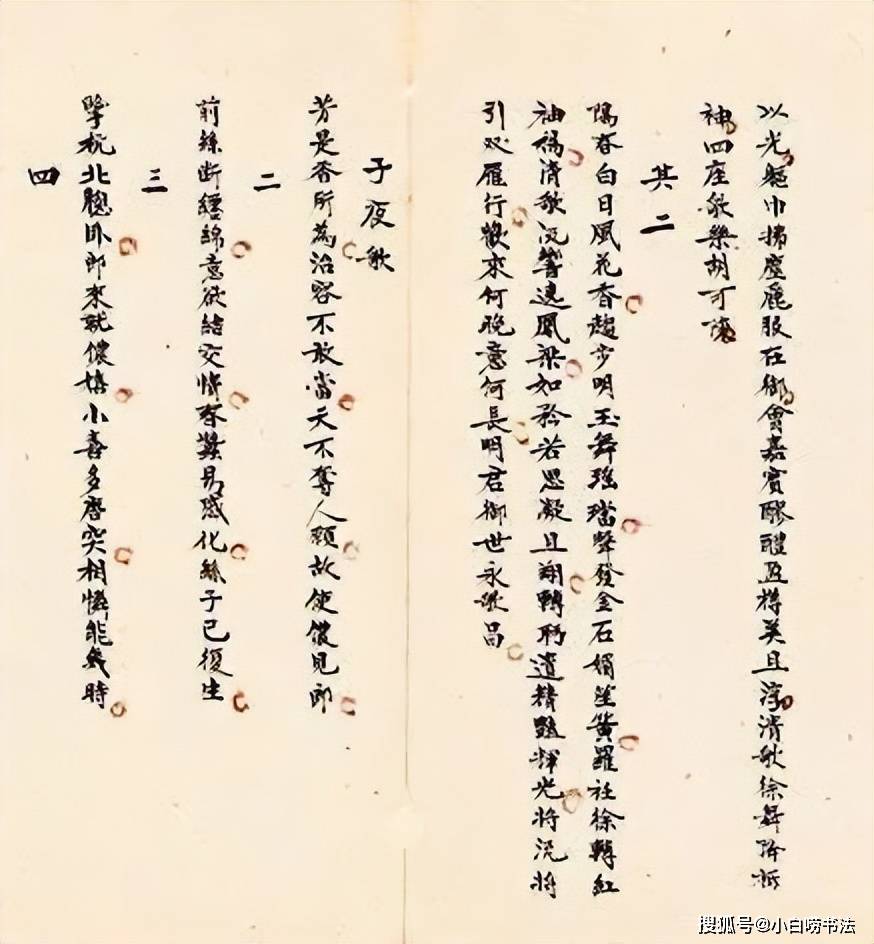 以光軀巾拂塵麗服在御會嘉賓醪醴盈樽美且淳清歌徐舞降祇
神四座歡樂胡可陳
其二
陽春白日風花香趨步明玉舞瑤璫聲發金石媚笙簧羅袿徐轉紅
袖揚清歌流響遶鳳梁如矜若思凝且翔轉眄遺精艷輝光將流將
引双雁行歡來何晚意何長明君御世永歌昌
子夜歌
芳是香所為冶容不敢當天不奪人願故使儂見郎
二
前絲斷纏綿意欲結交情春蠶易感化絲子已復生
三
擥枕北牕臥郎來就儂嬉小喜多唐突相憐能幾時
四
搜狐号@小白唠书法